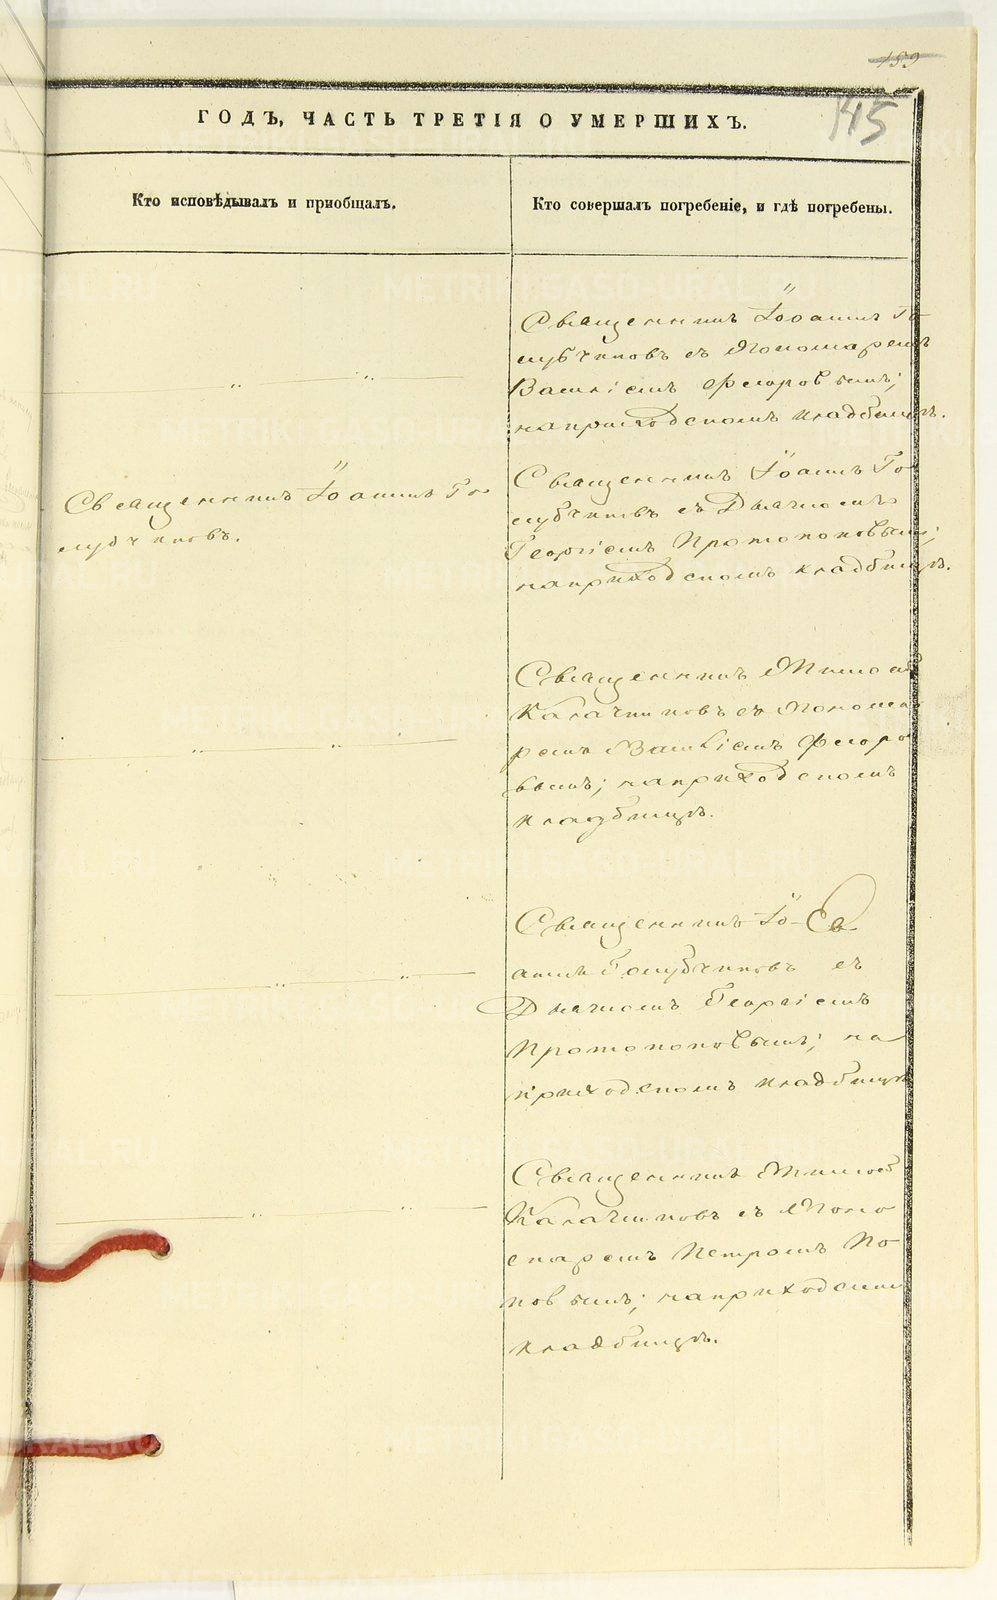 159
145
ГОДЪ, ЧАСТЬ ТРЕТІЯ О УМЕРШИХЪ.
Кто исповѣдывалъ и пріобщалъ.
Кто совершалъ погребеніе, и гдѣ погребены.
Священникъ Іоаннъ Го-
лубчиковъ съ Пономаремъ
Василіемъ Флоровымъ;
на приходскомъ кладбищѣ.
Священникъ Іоаннъ Го-
лубчиковъ.
Священникъ Іоаннъ Го-
лубчиковъ съ Дьячкомъ
Георгіемъ Протопоповымъ;
на приходскомъ кладбищѣ.
Священникъ
Калачниковъ съ Понома-
ремъ Василіемъ Флоро-
вымъ; на приходскомъ
кладбищѣ.
Священникъ Іо-
аннъ Голубчиковъ съ
Дьячкомъ Георгіемъ
Протопоповымъ; на
приходскомъ кладбищѣ
Священникъ
Калачниковъ съ Поно-
маремъ Петромъ По-
повымъ; на приходскомъ
кладбищѣ.
METRIKI.GASO-URAL.RU